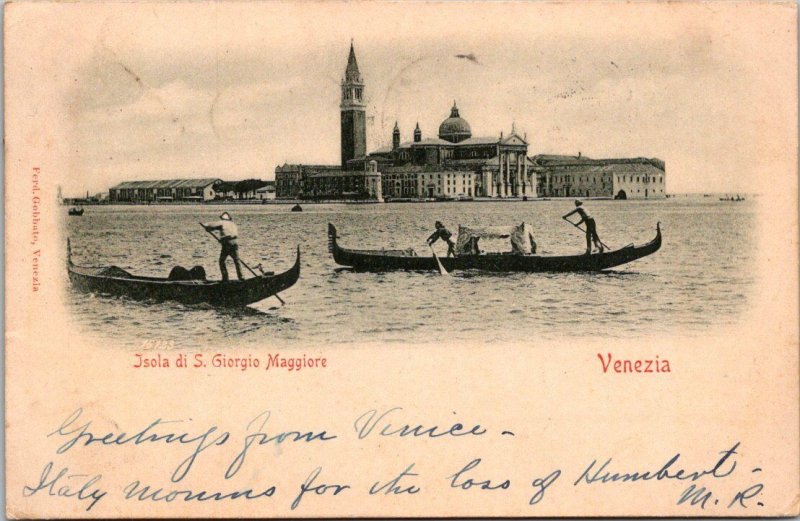 Ferd. Gobbato, Venezia
Isola di S. Giorgio Maggiore
Venezia
Greetings from Venice -
Italy mourns for the loss of Humbert -
M. R.